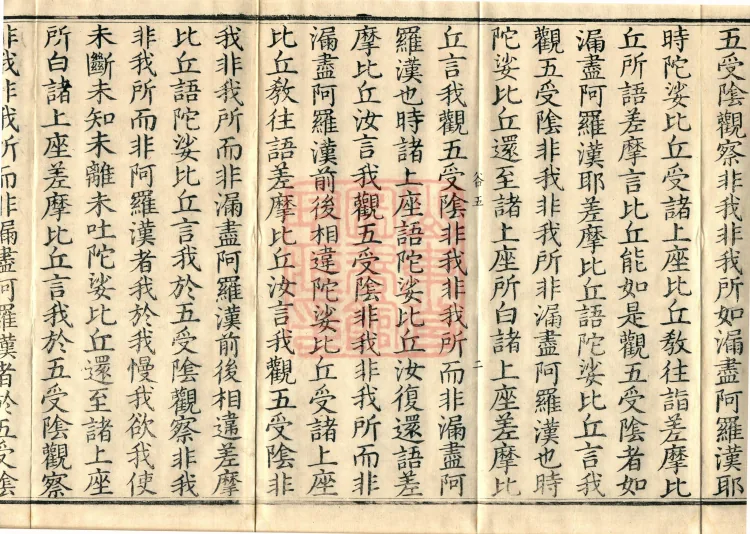 五受陰觀察非我非我所如漏盡阿羅漢耶
時陀娑比丘受諸上座比丘教往詣差摩比
丘所語差摩言比丘能如是觀五受陰者如
漏盡阿羅漢耶差摩比丘語陀娑比丘言我
觀五受陰非我非我所非漏盡阿羅漢也時
陀娑比丘還至諸上座所白諸上座差摩比
谷五 二
丘言我觀五受陰非我非我所而非漏盡阿
羅漢也時諸上座語陀娑比丘汝復還語差
摩比丘汝言我觀五受陰非我非我所而非
漏盡阿羅漢前後相違陀娑比丘受諸上座
比丘教往語差摩比丘汝言我觀五受陰非
我非我所而非漏盡阿羅漢前後相違差摩
比丘語陀娑比丘言我於五受陰觀察非我
非我所而非阿羅漢者我於我慢我欲我使
未斷未知未離未吐陀娑比丘還至諸上座
所白諸上座差摩比丘言我於五受陰觀察
非我非我所而非漏盡阿羅漢者於五受陰